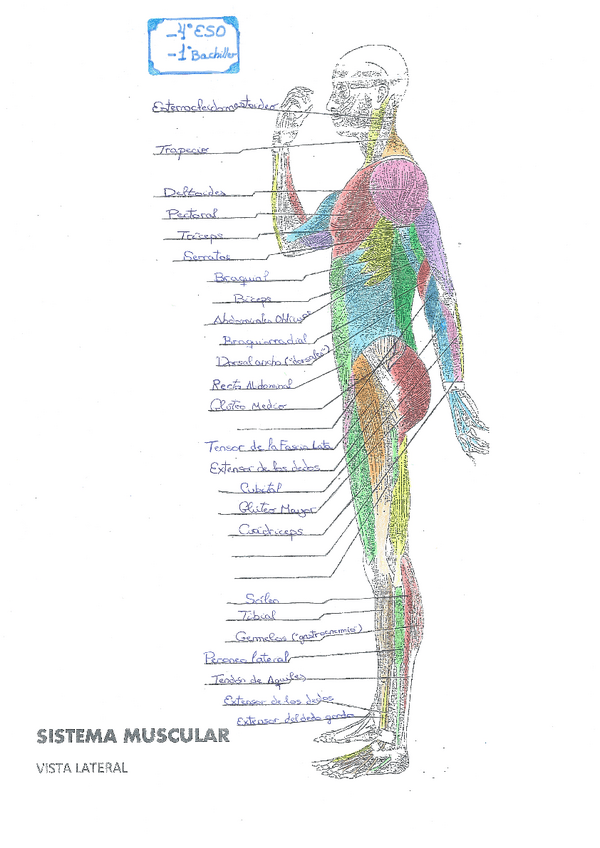 -4º ESO
-1º Bachiller
Esternocleidomastoideo
Trapecio
Deltoides
Pectoral
Triceps
Serratos
Braquial
Biceps
Abdominales Oblicuos
Braquiorradial
Dorsal ancho ("dorsales")
Recto Abdominal
Glúteo Medio
Tensor de la Fascia Lata
Extensor de los dedos
Cubital
Glúteo Mayor
Cuádriceps
Sóleo
Tibial
Gemelos ("gastrocnemio")
Peroneo lateral
Tendón de Aquiles
Extensor de los dedos
Extensor del dedo gordo
SISTEMA MUSCULAR
VISTA LATERAL